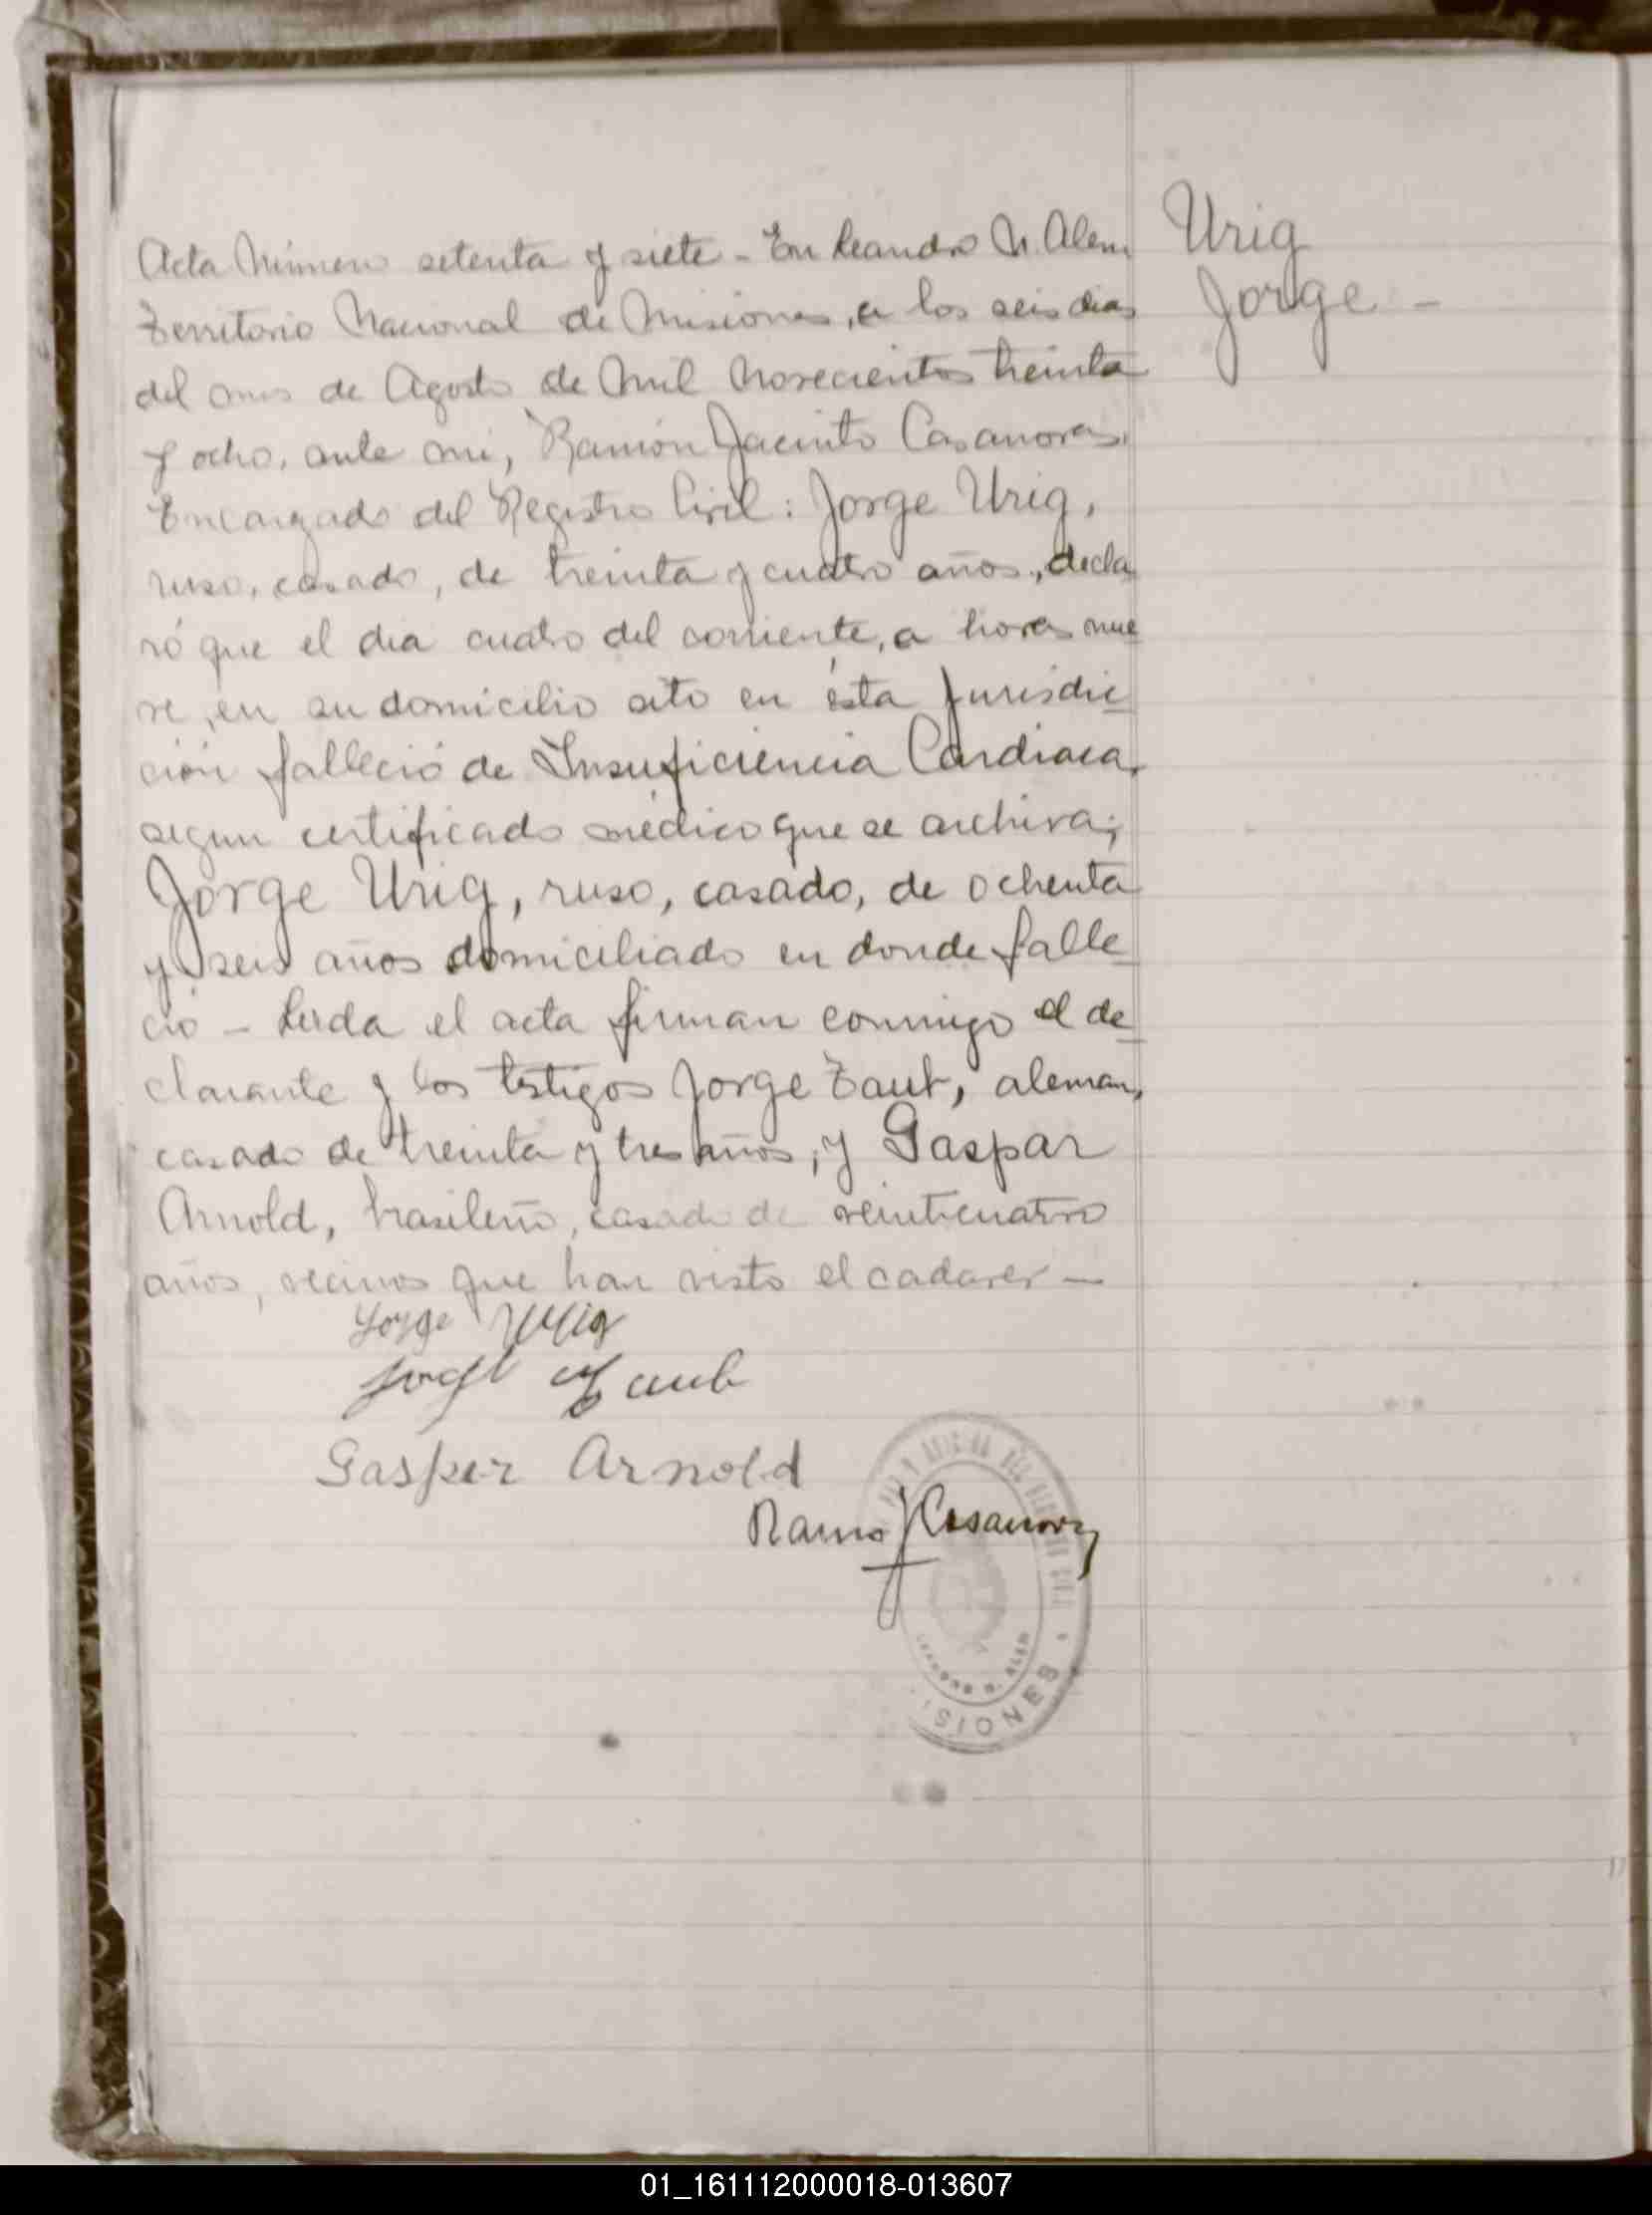 Acta Número setenta y siete - En Leandro N. Alem
Urig
Territorio Nacional de Misiones, a los seis dias
Jorge -
del mes de Agosto de Mil Novecientos treinta
y ocho, ante mi, Ramón Jacinto Casanovas,
Encargado del Registro Civil: Jorge Urig,
ruso, casado, de treinta y cuatro años, decla
ró que el dia cuatro del corriente, a horas nue
ve, en su domicilio sito en ésta Jurisdic
ción falleció de Insuficiencia Cardiaca,
segun certificado médico que se archiva;
Jorge Urig, ruso, casado, de ochenta
y seis años domiciliado en donde falle
ció - Leida el acta firman conmigo el de
clarante y los testigos Jorge Zaub, aleman,
casado de treinta y tres años, y Gaspar
Arnold, brasileño, casado de veinticuatro
años, vecinos que han visto el cadaver -
Jorge Urig
Jorge Zaub
Gasper Arnold
Ramon J Casanovas
LEANDRO N. ALEM
MISIONES
01_161112000018-013607